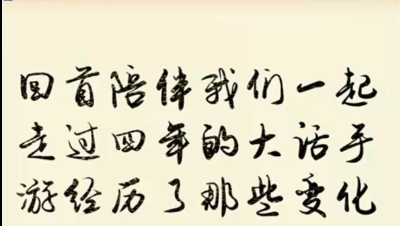 回首陪伴我们一起
走过四年的大话手
游经历了那些变化